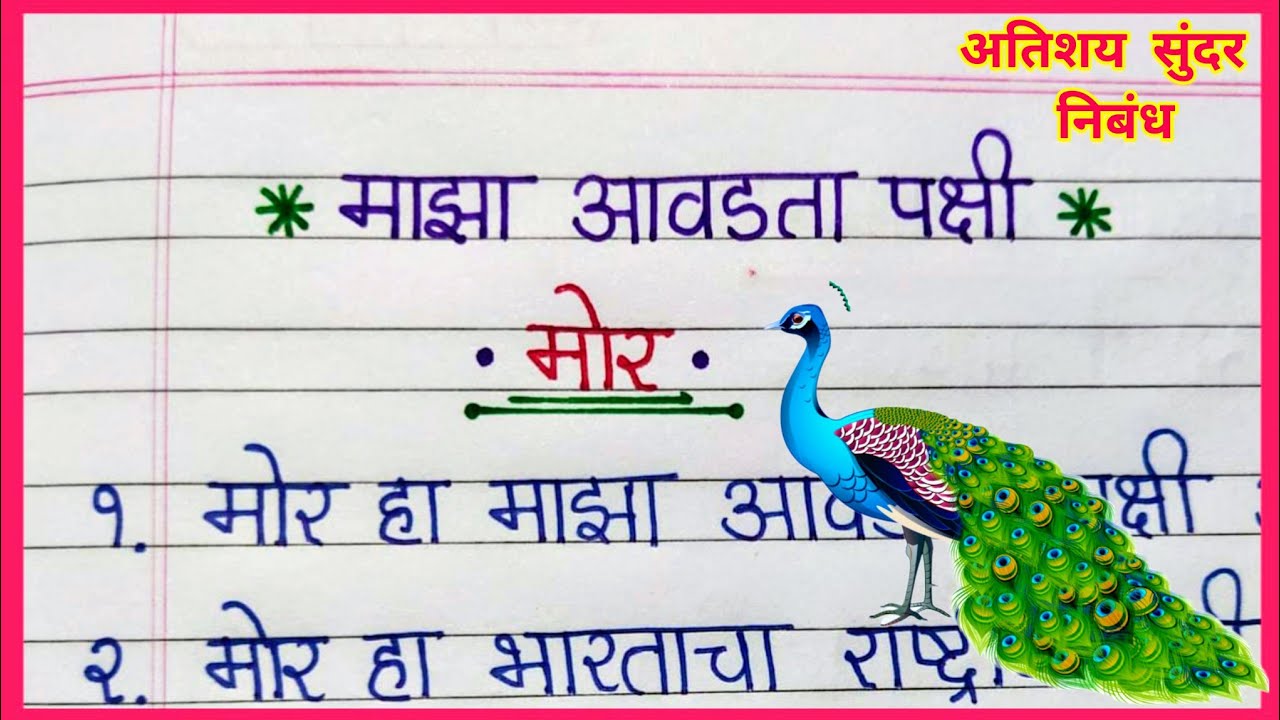 अतिशय सुंदर
निबंध
* माझा आवडता पक्षी *
• मोर •
१. मोर हा माझा पक्षी
२. मोर हा भारताचा